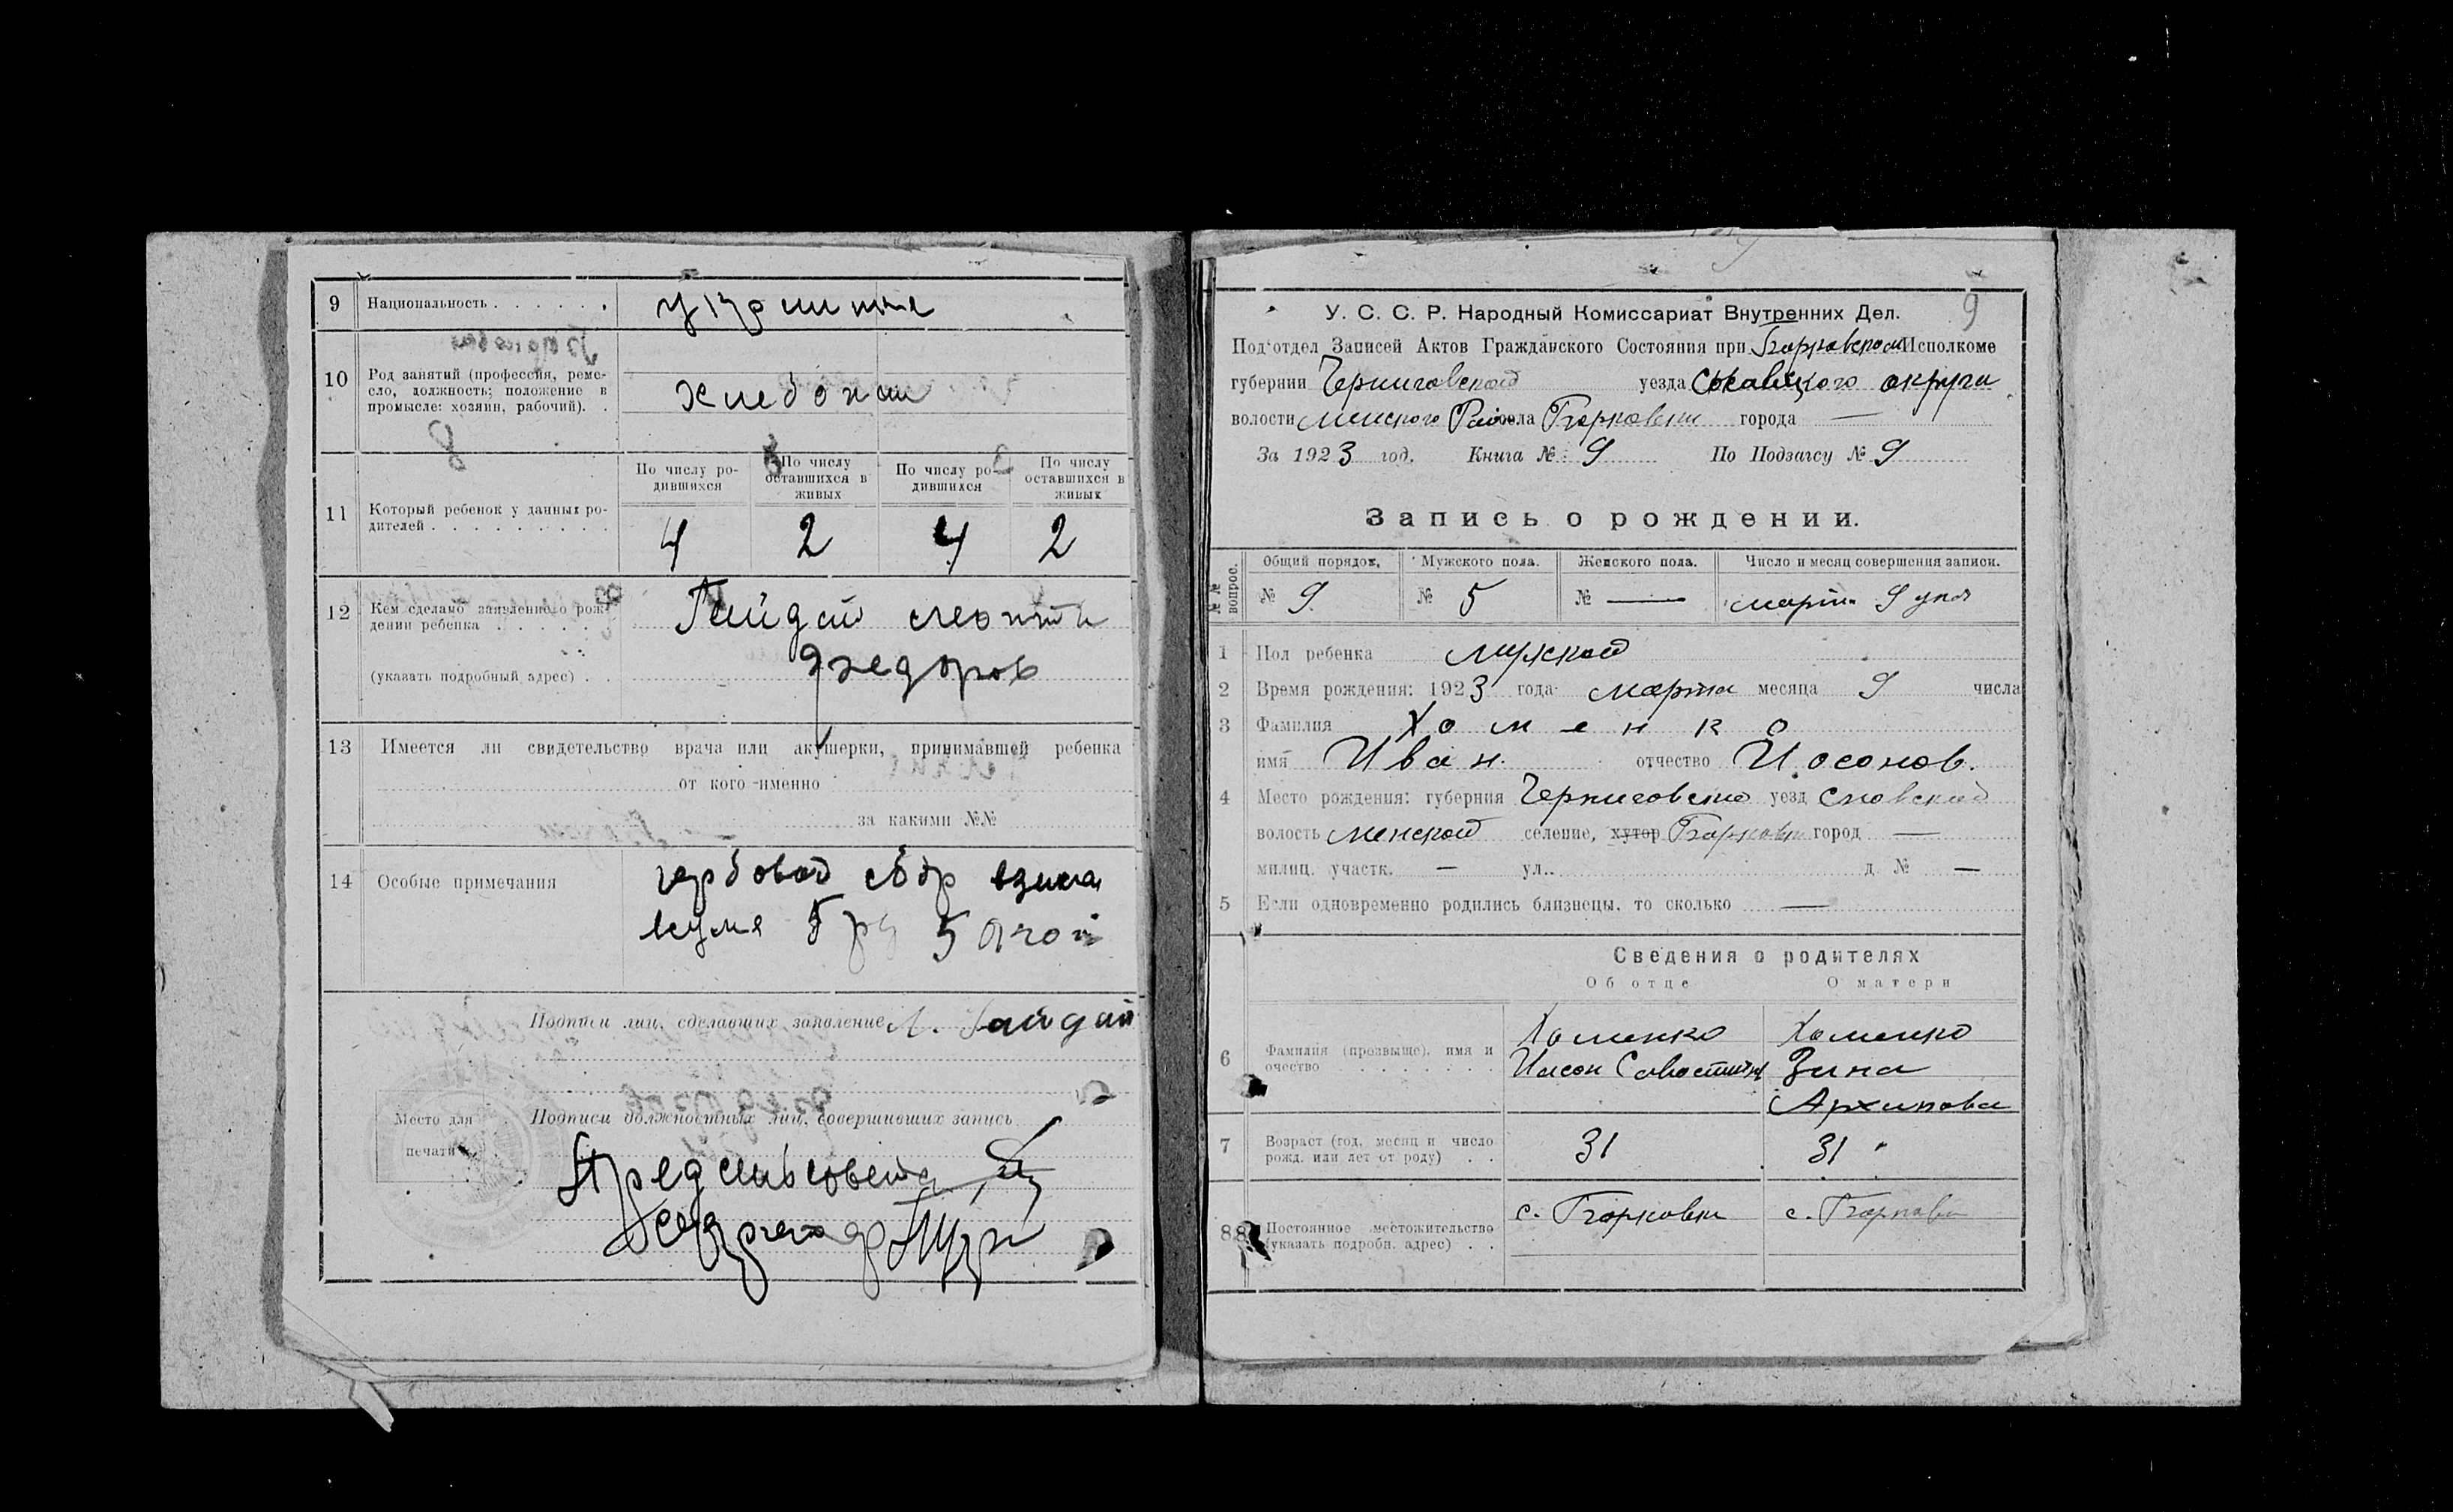 9 Национальность
украинцы
10 Род занятий (профессия, реме-
сло, должность; положение в
промысле: хозяин, рабочий).
По числу ро-
дившихся
По числу
оставшихся в
живых
По числу ро-
дившихся
По числу
оставшихся в
живых
11 Который ребенок у данных ро-
дителей
4 2 4 2
12 Кем сделано заявленіе о рож-
дении ребенка
Гайдай Леонтий
Федоров
(указать подробный адрес)
13 Имеется ли свидетельство врача или акушерки, принимавшей ребенка
от кого именно
за какими №№
14 Особые примечания
гербовой сбор
5 5
Подписи лиц, сделавших заявление Л. Гайдай
Место для
печати
Подписи должностных лиц, совершивших запись
Предсельсовета
9
У. С. С. Р. Народный Комиссариат Внутренних Дел.
Под'отдел Записей Актов Гражданского Состояния при Исполкоме
губернии Черниговской уезда округа
волости Менского села города —
За 1923 год. Книга № 9 По Подзагсу № 9
Запись о рождении.
№№ вопрос.
Общий порядок. Мужского пола. Женского пола. Число и месяц совершения записи.
№ 9 № 5 № — марта 9 дня
1 Пол ребенка мужской
2 Время рождения: 1923 года марта месяца 9 числа
3 Фамилия Хоменко
имя Иван отчество Иосонов.
4 Место рождения: губерния Черниговской уезд Сновской
волость Менской селение, хутор город —
милиц. участк. — ул. д № —
5 Если одновременно родились близнецы, то сколько —
Сведения о родителях
Об отце О матери
6 Фамилия (прозвище), имя и
очество
Хоменко Хоменко
Иасон Савостиян Зина
Архипова
7 Возраст (год, месяц и число
рожд. или лет от роду)
31 31
8 Постоянное местожительство
(указать подробн. адрес)